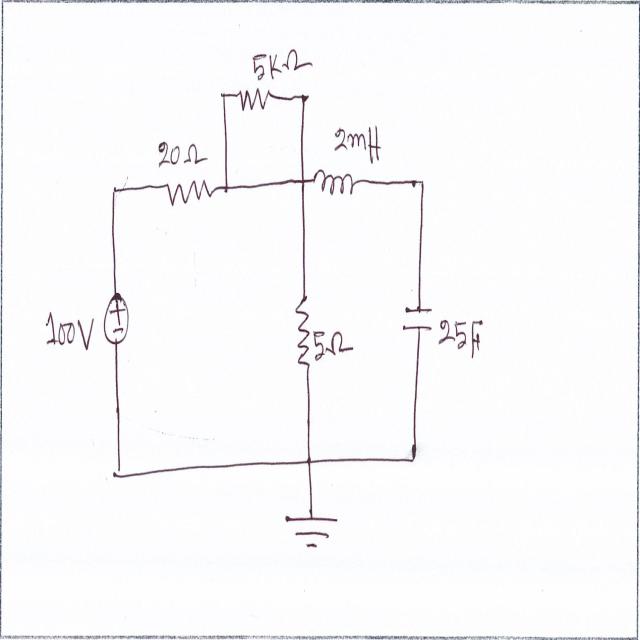 5KΩ
20Ω
2mH
100V
+
-
5Ω
25F